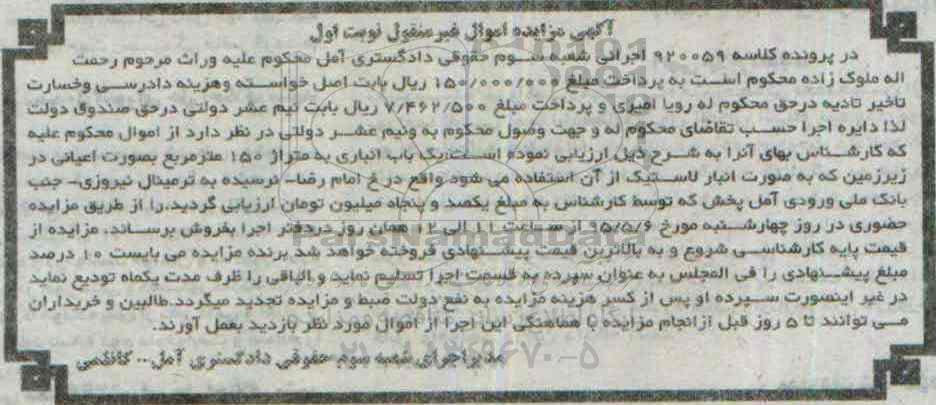 آگهی مزایده اموال غیر منقول نوبت اول
در پرونده کلاسه ۹۲۰۰۵۹ اجرائی شعبه سوم حقوقی دادگستری آمل محکوم علیه وراث مرحوم رحمت
اله ملوک زاده محکوم است به پرداخت مبلغ ۱۵۰/۰۰۰/۰۰۰ ریال بابت اصل خواسته وهزینه دادرسی وخسارت
تاخیر تادیه درحق محکوم له رویا امیری و پرداخت مبلغ ۷/۴۶۲/۵۰۰ ریال بابت نیم عشر دولتی درحق صندوق دولت
لذا دایره اجرا حسب تقاضای محکوم له و جهت وصول محکوم به ونیم عشر دولتی در نظر دارد از اموال محکوم علیه
که کارشناس بهای آنرا به شرح ذیل ارزیابی نموده است:یک باب انباری به متراژ ۱۵۰ مترمربع بصورت اعیانی در
زیرزمین که به صورت انبار لاستیک از آن استفاده می شود واقع در خ امام رضا- نرسیده به ترمینال فیروزی- جنب
بانک ملی ورودی آمل پخش که توسط کارشناس به مبلغ یکصد و پنجاه میلیون تومان ارزیابی گردید.را از طریق مزایده
حضوری در روز چهارشنبه مورخ ۹۵/۵/۶ از ساعت ۱۱ الی ۱۲ همان روز دردفتر اجرا بفروش برساند. مزایده از
قیمت پایه کارشناسی شروع و به بالاترین قیمت پیشنهادی فروخته خواهد شد برنده مزایده می بایست ۱۰ درصد
مبلغ پیشنهادی را فی المجلس به عنوان سپرده به قسمت اجرا تسلیم نماید و الباقی را ظرف مدت یکماه تودیع نماید
در غیر اینصورت سپرده او پس از کسر هزینه مزایده به نفع دولت ضبط و مزایده تجدید میگردد.طالبین و خریداران
می توانند تا ۵ روز قبل ازانجام مزایده با هماهنگی این اجرا از اموال مورد نظر بازدید بعمل آورند.
مدیر اجرای شعبه سوم حقوقی دادگستری آمل... کاظمی
ParsNamadData
۰۲۱-۸۸۳۴۹۶۷۰-۵